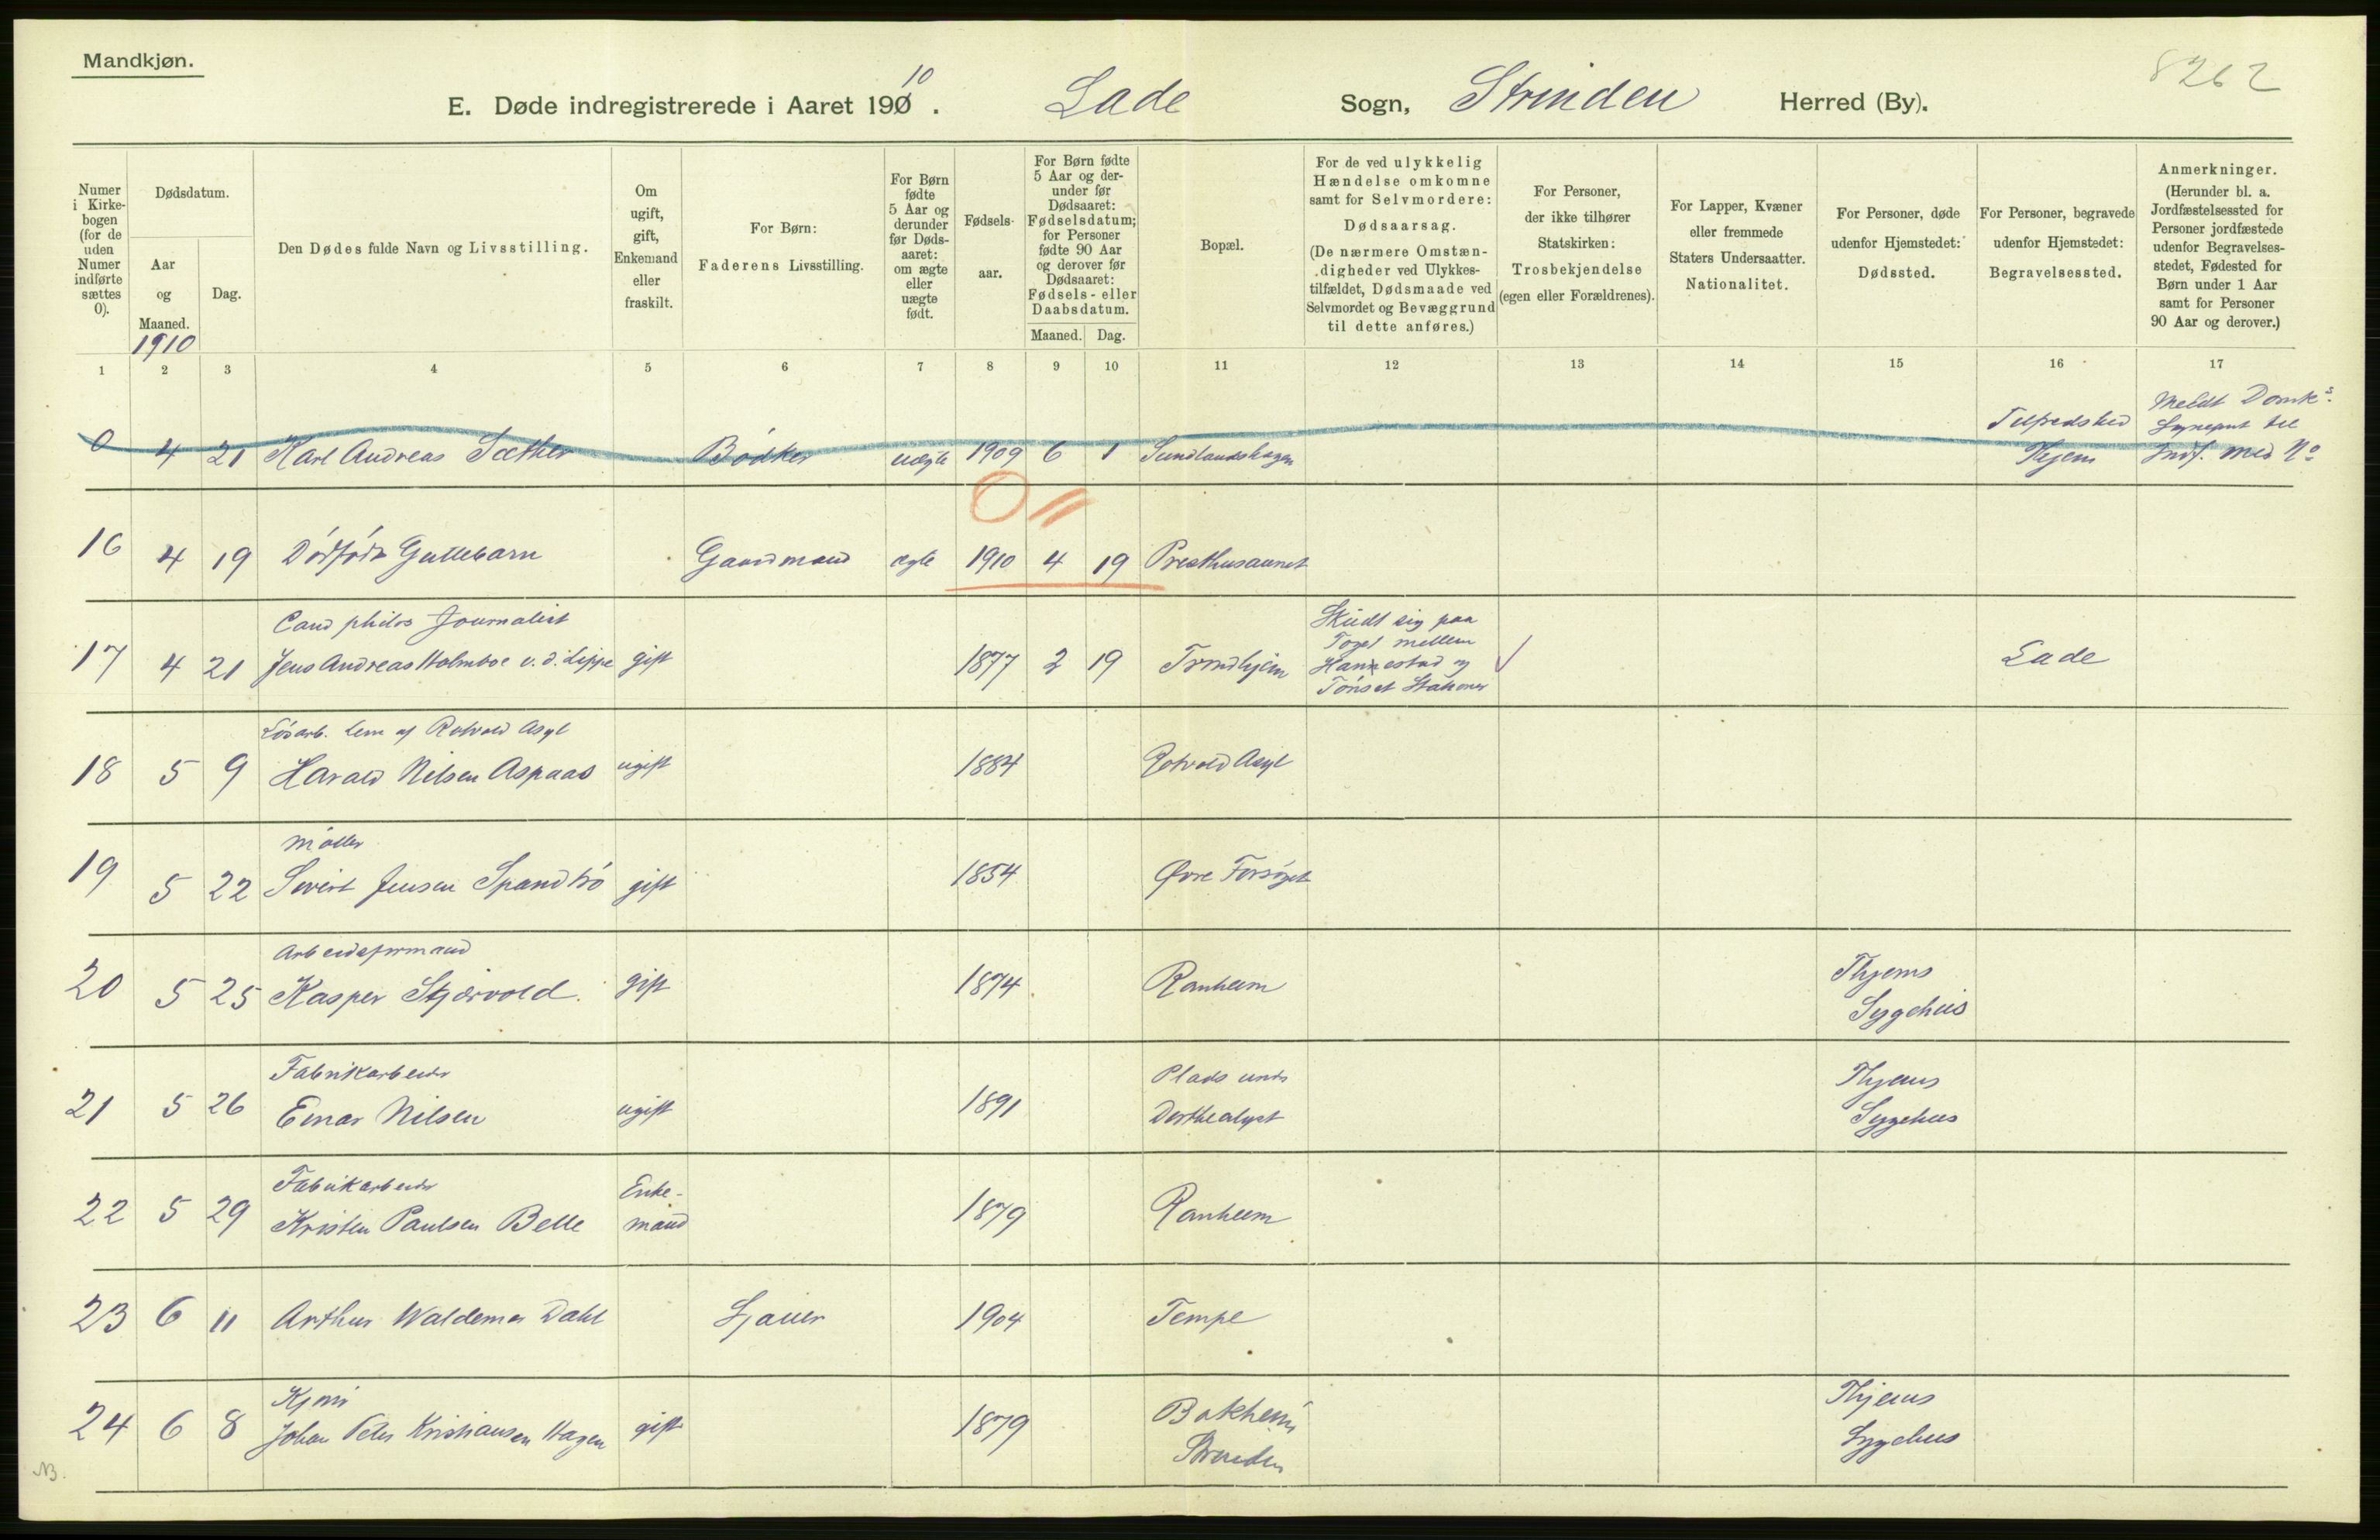 Mandkjøn.
8262
E. Døde indregistrerede i Aaret 1910. Lade Sogn, Strinden Herred (By).
Numer i Kirkebogen (for de uden Numer indførte sættes 0).
Dødsdatum.
Aar og Maaned.
1910
Dag.
Den Dødes fulde Navn og Livsstilling.
Om ugift, gift, Enkemand eller fraskilt.
For Børn: Faderens Livsstilling.
For Børn fødte 5 Aar og derunder før Dødsaaret: om ægte eller uægte født.
Fødselsaar.
For Børn fødte 5 Aar og derunder før Dødsaaret: Fødselsdatum; for Personer fødte 90 Aar og derover før Dødsaaret: Fødsels- eller Daabsdatum.
Maaned. Dag.
Bopæl.
For de ved ulykkelig Hændelse omkomne samt for Selvmordere: Dødsaarsag. (De nærmere Omstændigheder ved Ulykkestilfældet, Dødsmaade ved Selvmordet og Bevæggrund til dette anføres.)
For Personer, der ikke tilhører Statskirken: Trosbekjendelse (egen eller Forældrenes).
For Lapper, Kvæner eller fremmede Staters Undersaatter. Nationalitet.
For Personer, døde udenfor Hjemstedet: Dødssted.
For Personer, begravede udenfor Hjemstedet: Begravelsessted.
Anmerkninger. (Herunder bl. a. Jordfæstelsessted for Personer jordfæstede udenfor Begravelsesstedet, Fødested for Børn under 1 Aar samt for Personer 90 Aar og derover.)
1 2 3 4 5 6 7 8 9 10 11 12 13 14 15 16 17
Meldt Domk.
Tilfredshed
0 4 21 Karl Andreas Sæther Bødker uægte 1909 6 1 Sundlandshagen Thjem Indf. med No
16 4 19 Dødfødt Guttebarn Gaardmand ægte 1910 4 19 Presthusaunet
Cand philos Journalist
17 4 21 Jens Andreas Holmboe v. d. Lippe gift 1877 2 19 Trondhjem Lade
Skudt sig paa
Toget mellem
Hanestad og
Tønset Stationer
Løsarb. lem af Rotvold Asyl
18 5 9 Harald Nilsen Aspaas ugift 1884 Rotvold Asyl
Møller
19 5 22 Sivert Jensen Spandbø gift 1854 Øvre Forsøget
Arbeidsformand
20 5 25 Kasper Stjærvold gift 1874 Ranheim Thjems
Sygehus
Fabrikarbeider Plads under Thjems
21 5 26 Einar Nilsen ugift 1891 Dorthealyst Sygehus
Fabrikarbeider Enke-
22 5 29 Kristen Paulsen Belle mand 1879 Ranheim
23 6 11 Arthur Waldemar Dahl Sjauer 1904 Tempe
Thjems
24 6 8 Johan Peter Kristiansen Hagen gift 1879 Bakheim Sygehus
Strinden
NB.